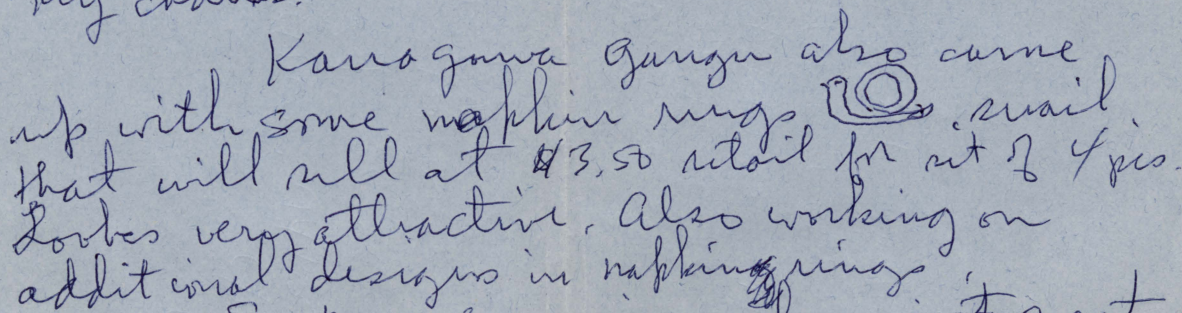 my
Kanagawa Gangu also came
up with some napkin rings snail
that will sell at $3.50 retail for set of 4 pcs.
Lookes very attractive. Also working on
additional designs in napkin rings.